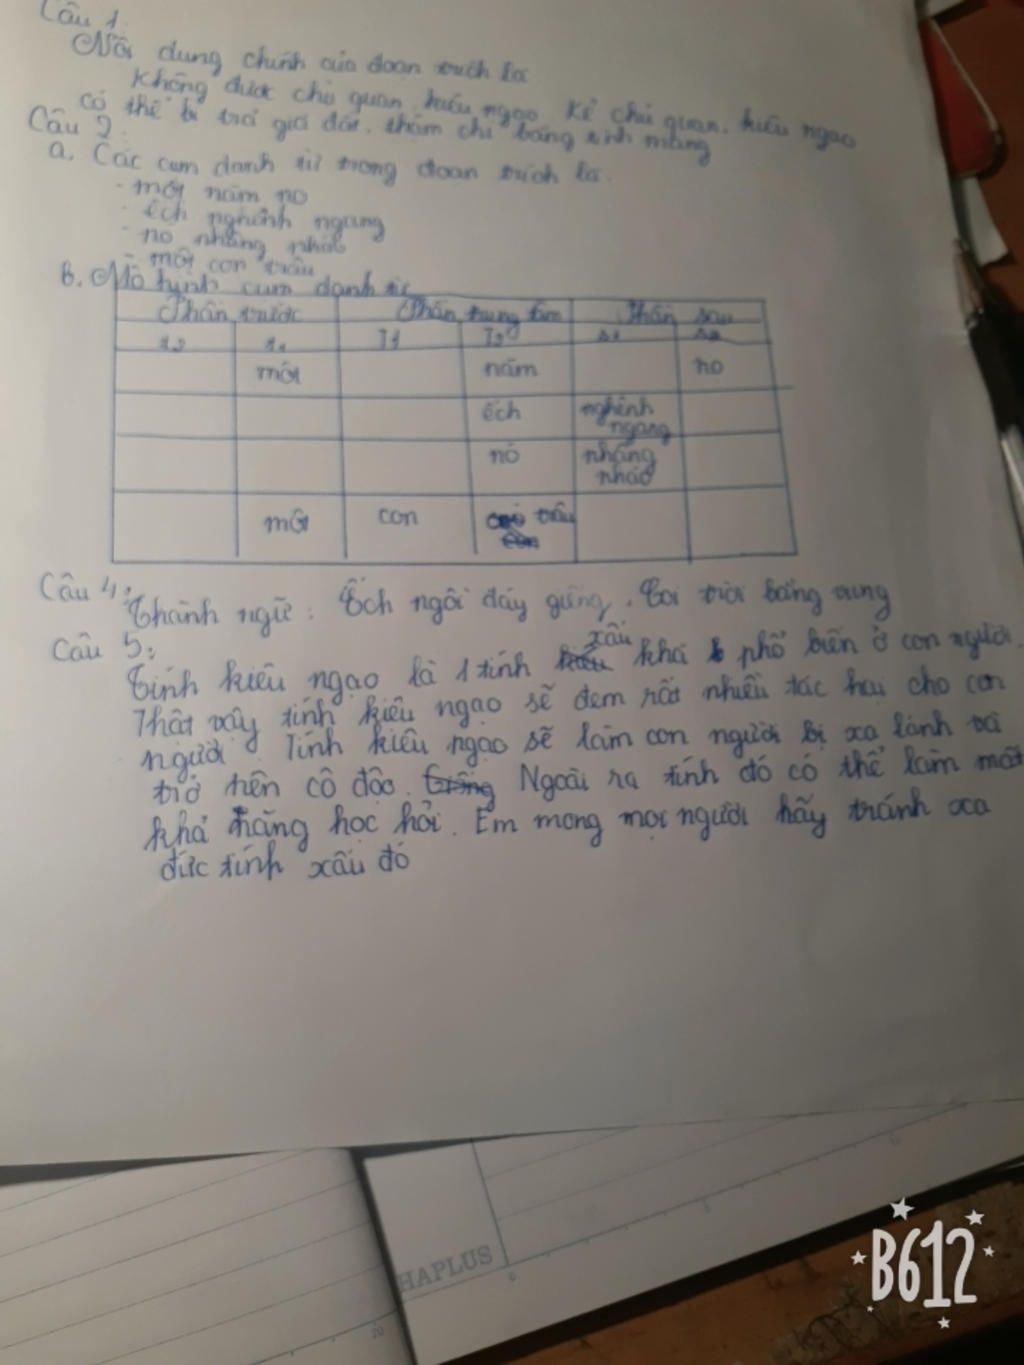 Câu 1.
Nội dung chính của đoạn trích là
Không được chủ quan, kiêu ngạo. Kẻ chủ quan, kiêu ngạo
có thể bị trả giá đắt, thậm chí bằng tính mạng
Câu 2.
a. Các cụm danh từ trong đoạn trích là.
- một năm nọ
- ếch nghênh ngang
- nó nhâng nháo
- một con trâu
b. Mô hình cụm danh từ
Phần trước Phần trung tâm Phần sau
t2 t1 T1 T2 s1 s2
một năm nọ
ếch nghênh ngang
nó nhâng nháo
một con trâu
Câu 4:
Thành ngữ: Ếch ngồi đáy giếng. Coi trời bằng vung
Câu 5:
Tính kiêu ngạo là 1 tính xấu khá phổ biến ở con người.
Thật vậy tính kiêu ngạo sẽ đem rất nhiều tác hại cho con
người. Tính kiêu ngạo sẽ làm con người bị xa lánh và
trở nên cô độc. Ngoài ra tính đó có thể làm mất
khả năng học hỏi. Em mong mọi người hãy tránh xa
đức tính xấu đó
HAPLUS
0
20
B612